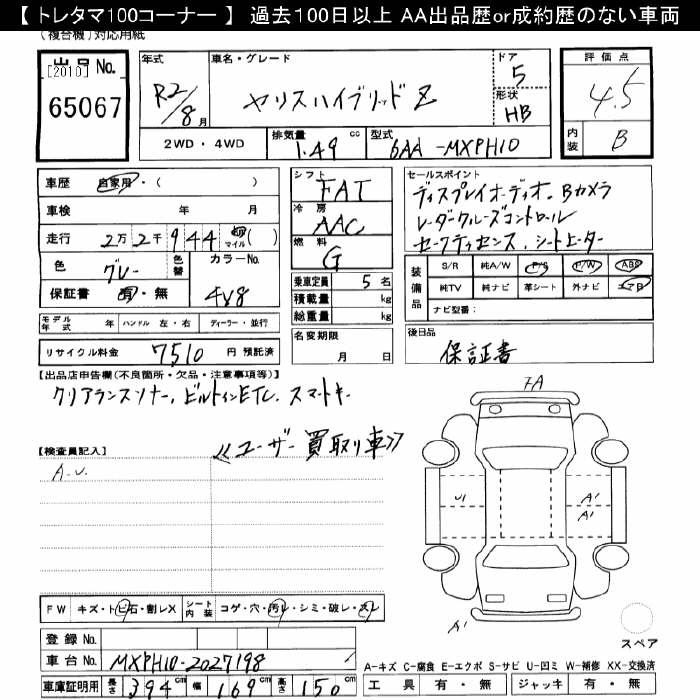 【 トレタマ100コーナー 】 過去100日以上 AA出品歴or成約歴のない車両
(複合機)対応用紙
出品No.
[2010]
65067
年式
R2/8月
車名・グレード
ヤリスハイブリッド Z
ドア
5
形状
HB
評価点
4.5
内装
B
2WD・4WD
排気量
1.49 cc
型式
6AA-MXPH10
車歴 自家用・( )
車検 年 月
走行 2万2千944 マイル( )
色 グレー 色替
カラーNo.
4V8
保証書 有・無
シフト
FAT
冷房
AAC
燃料
G
乗車定員 5名
積載量 kg
総重量 kg
名変期限
月 日
セールスポイント
ディスプレイオーディオ、Bカメラ
レーダークルーズコントロール
セーフティセンス、シートヒーター
装備品
S/R 純A/W P/S P/W ABS
純TV 純ナビ 革シート 外ナビ エアB
ナビ型番:
モデル年式 年 ハンドル 左・右 ディーラー・並行
リサイクル料金 7510 円 預託済
後日品
保証書
【出品店申告欄(不良箇所・欠品・注意事項等)】
クリアランスソナー、ビルトインETC、スマートキー
《ユーザー買取り車》
【検査員記入】
A・U
FA
U1
A1
A1
A1
FW キズ・トビ石・割レX シート内装 コゲ・穴・汚レ・シミ・破レ・スレ
登録No.
車台No. MXPH10-2027198
車庫証明用 長さ 394cm 幅 169cm 高さ 150cm
スペア
A-キズ C-腐食 E-エクボ S-サビ U-凹ミ W-補修 XX-交換済
工具 有・無 ジャッキ 有・無